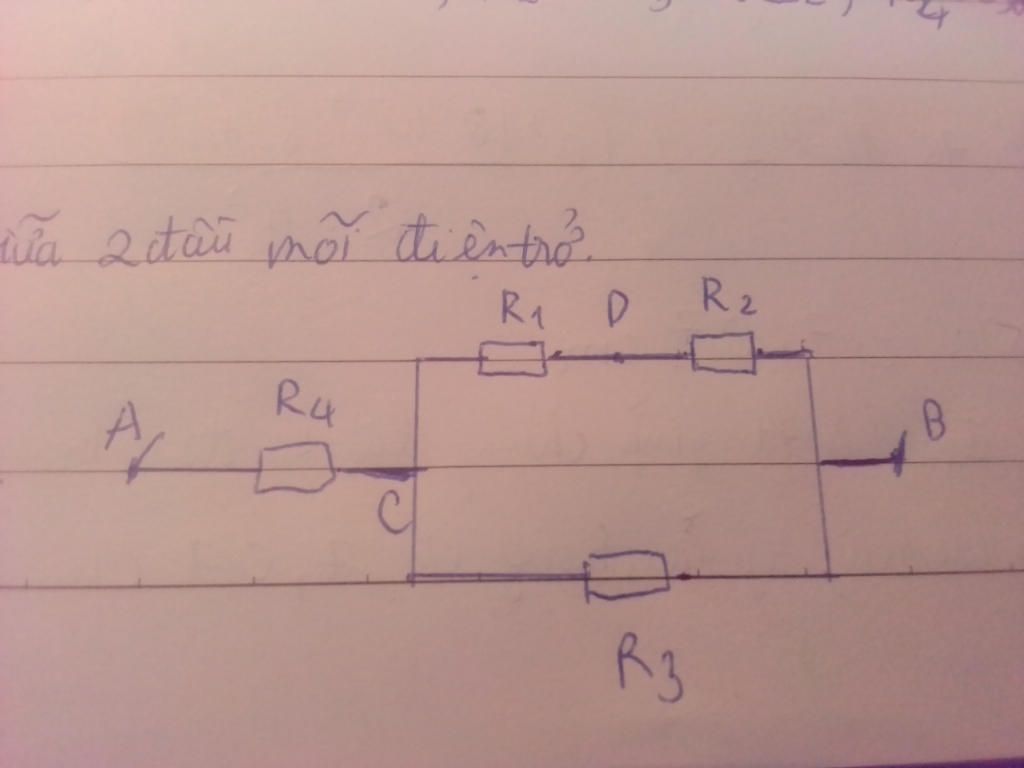 2 đầu mỗi điện trở.
R1 D R2
A R4 B
C
R3